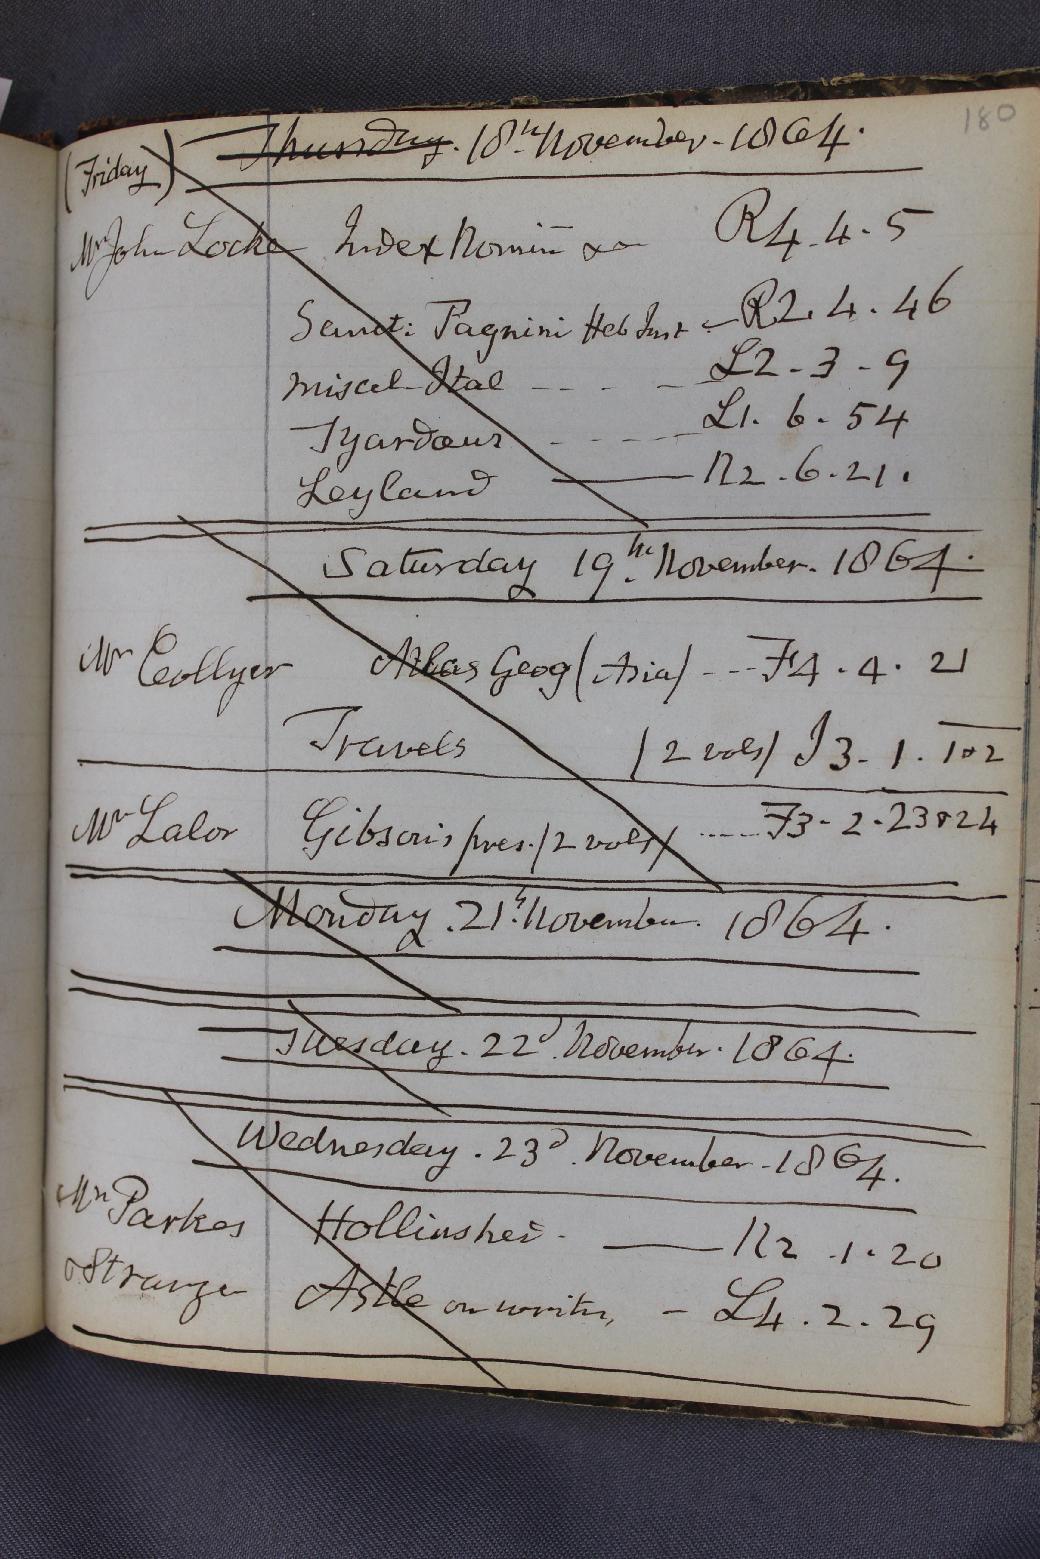 180
(Friday) Thursday. 18th November. 1864.
Mr John Locke Index Nomin &c R4.4.5
Sanct: Pagnini Heb Inst - R2.4.46
Miscel Ital - - - - L2-3-9
Tyardaus - - - - - L1.6.54
Leyland — R2.6.21.
Saturday 19th November. 1864.
Mr Collyer Atlas Geog (Asia) --- F4.4.21
Travels (2 vols) J3-1.1&2
Mr Lalor Gibson's pres. (2 vols) ---- F3-2-23&24
Monday. 21st November. 1864.
Tuesday. 22d November. 1864.
Wednesday. 23d November. 1864.
Mr Parkes Hollinshed - — R2.1.20
& Strange Astle on writing - L4.2.29